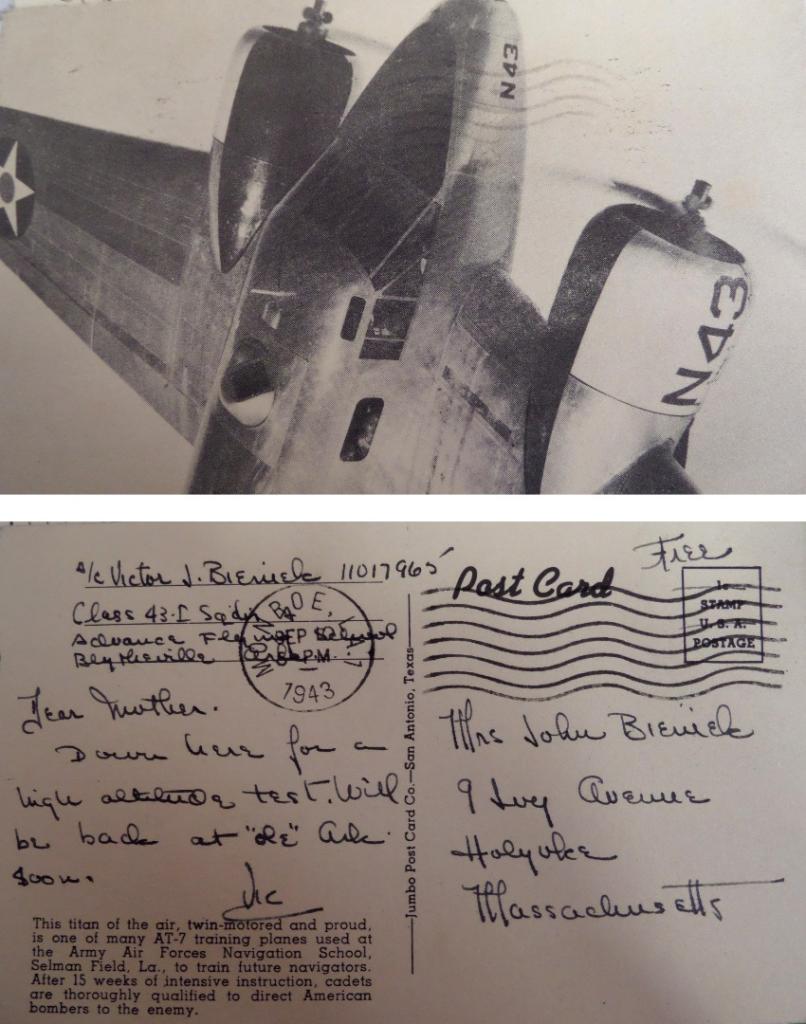 N43
N43
A/c Victor J. Bieniek 11017965
Class 43-I Sq'dn
Advance Flying School
Blytheville Ark.
SEP
PM
1943
Dear Mother.
Down here for a
high altitude test. Will
be back at "ole" Ark.
soon.
Vic
This titan of the air, twin-motored and proud,
is one of many AT-7 training planes used at
the Army Air Forces Navigation School,
Selman Field, La., to train future navigators.
After 15 weeks of intensive instruction, cadets
are thoroughly qualified to direct American
bombers to the enemy.
Jumbo Post Card Co.—San Antonio, Texas
Post Card
Free
1c
STAMP
U. S. A.
POSTAGE
Mrs John Bieniek
9 Ivy Avenue
Holyoke
Massachusetts